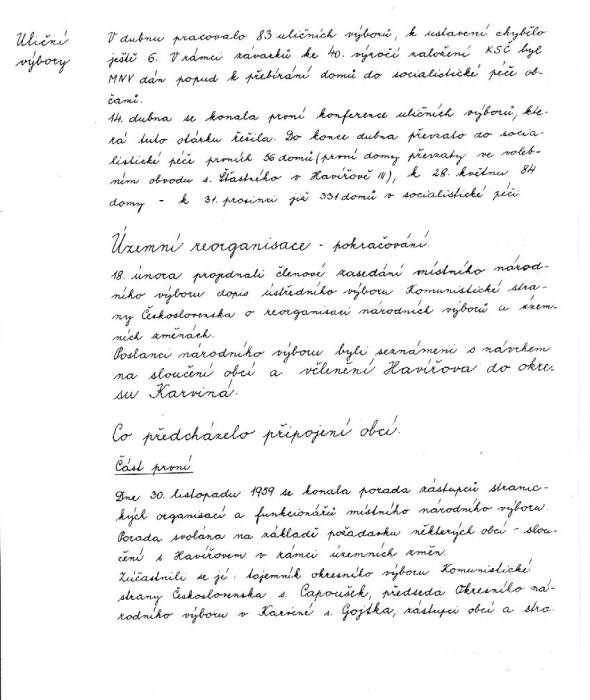 Uliční
výbory
V dubnu pracovalo 83 uličních výborů, k ustavení chybělo
ještě 6. V rámci závazků ke 40. výročí založení KSČ byl
MNV dán popud k přebírání domů do socialistické péče ob-
čany.
14. dubna se konala první konference uličních výborů, kte-
rá tuto otázku řešila. Do konce dubna převzato do socia-
listické péče prvních 56 domů (první domy převzaty ve voleb-
ním obvodu s. Šťastného v Havířově IV), k 28. květnu 84
domy - k 31. prosinci již 331 domů v socialistické péči
Územní reorganisace - pokračování.
18. února projednali členové zasedání místního národ-
ního výboru dopis ústředního výboru Komunistické stra-
ny Československa o reorganisaci národních výborů a územ-
ních změnách.
Poslanci národního výboru byli seznámeni s návrhem
na sloučení obcí a včlenění Havířova do okre-
su Karviná.
Co předcházelo připojení obcí.
Část první
Dne 30. listopadu 1959 se konala porada zástupců stranic-
kých organisací a funkcionářů místního národního výboru.
Porada svolána na základě požadavku některých obcí - slou-
čení s Havířovem v rámci územních změn.
Zúčastnili se jí: tajemník okresního výboru Komunistické
strany Československa s. Capoušek, předseda Okresního ná-
rodního výboru v Karviné s. Gojtka, zástupci obcí a stra-